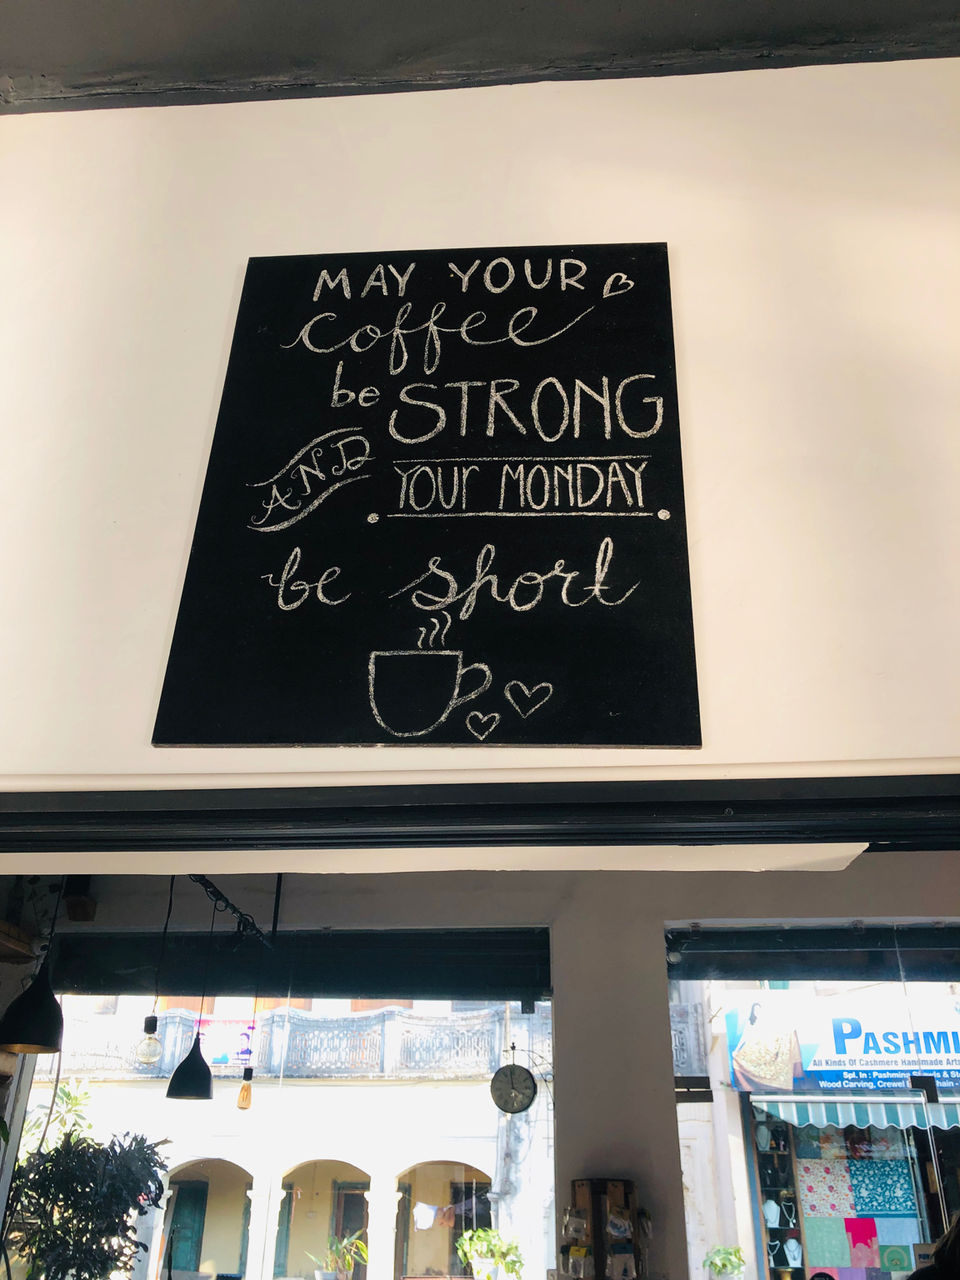 MAY YOUR
coffee
be STRONG
AND YOUR MONDAY
be short
PASHMI
All Kinds Of Cashmere Handmade Arts
Spl. In : Pashmina Shawls & St
Wood Carving, Crewel